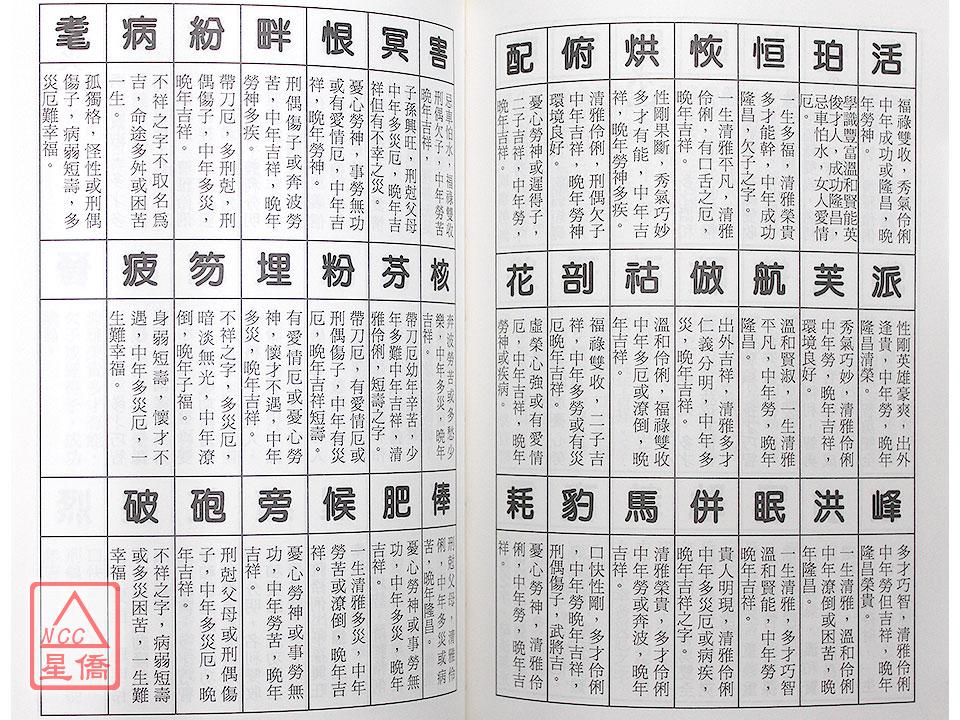 活
福祿雙收，秀氣伶俐
中年成功或隆昌，晚
年勞神。
珀
學識豐富溫和賢能英
俊才人，成功隆昌，
忌車怕水，女人愛情
厄。
恒
一生多福，清雅榮貴
多才能幹，中年成功
隆昌，欠子之字。
恢
一生清雅平凡，清雅
伶俐，有口舌之厄，
晚年吉祥。
烘
性剛果斷，秀氣巧妙
多才有能，中年吉
祥，晚年勞神多疾。
俯
清雅伶俐，刑偶欠子
中年吉祥，晚年勞神
環境良好。
配
憂心勞神或遲得子，
二子吉祥，中年勞，
晚年吉祥。
派
性剛英雄豪爽，出外
逢貴，中年勞，晚年
隆昌清榮。
芙
秀氣巧妙，清雅伶俐
中年勞，晚年吉祥，
環境良好。
航
溫和賢淑，一生清雅
平凡，中年勞，晚年
隆昌。
倣
出外吉祥，清雅多才
仁義分明，中年多
災，晚年吉祥。
祜
溫和伶俐，福祿雙收
中年多厄或潦倒，晚
年吉祥。
剖
福祿雙收，二子吉
祥，中年多勞或有災
厄，晚年吉祥。
花
虛榮心強或有愛情
厄，中年吉祥，晚年
勞神或疾病。
峰
多才巧智，清雅伶俐
中年勞但吉祥，晚年
隆昌榮貴。
洪
一生清雅，溫和伶俐
中年潦倒或困苦，晚
年隆昌。
眠
一生清雅，多才巧智
溫和賢能，中年勞，
晚年吉祥。
併
貴人明現，清雅伶俐
中年多災厄或病疾，
晚年吉祥之字。
馬
清雅榮貴，多才伶俐
中年勞或奔波，晚年
吉祥。
豹
口快性剛，多才伶俐
，中年勞，晚年吉祥，
刑偶傷子，武將吉。
耗
憂心勞神，清雅伶
俐，中年勞，晚年吉
祥。
害
忌車怕水，福祿雙收
刑偶欠子，中年勞苦
晚年吉祥，
冥
子孫興旺，刑尅父母
中年多災厄，晚年吉
祥但有不幸之災。
恨
憂心勞神，事勞無功
或有愛情厄，中年吉
祥，晚年勞神。
畔
刑偶傷子或奔波勞
苦，中年吉祥，晚年
勞神多疾。
紛
帶刀厄，多刑尅，刑
偶傷子，中年多災，
晚年吉祥。
病
不祥之字不取名爲
吉，命途多舛或困苦
一生。
耄
孤獨格，怪性或刑偶
傷子，病弱短壽，多
災厄難幸福。
核
奔波勞苦或多愁少
樂，中年多災，晚年
吉祥。
芬
帶刀厄幼年辛苦，少
年多難中年吉祥，清
雅伶俐，短壽之字
粉
帶刀厄，有愛情厄或
刑偶傷子，中年有災
厄，晚年吉祥短壽。
埋
有愛情厄或憂心勞
神，懷才不遇，中年
多災，晚年吉祥。
笏
不祥之字，多災厄，
暗淡無光，中年潦
倒，晚年子福。
疲
身弱短壽，懷才不
遇，中年多災厄，一
生難幸福。
俸
刑尅父母，清雅伶
俐，中年多災或病
苦，晚年隆昌。
肥
憂心勞神或事勞無
功，中年多災，晚年
吉祥。
候
一生清雅多災，中年
勞苦或潦倒，晚年吉
祥。
旁
憂心勞神或事勞無
功，中年勞苦，晚年
吉祥。
砲
刑尅父母或刑偶傷
子，中年多災厄，晚
年吉祥。
破
不祥之字，病弱短壽
或多災困苦，一生難
幸福
NCC
星僑